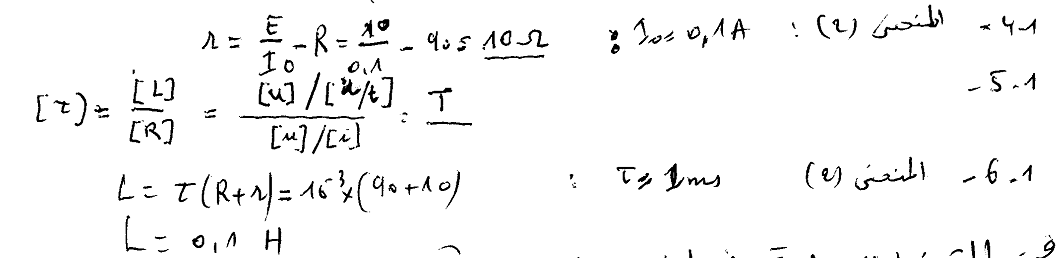 4.1 - المنحنى (2) : I₀ = 0,1A : r = E/I₀ - R = 10/0,1 - 90 = 10Ω
5.1 - [τ] = [L]/[R] = [u]/[i/t] / [u]/[i] = T
6.1 - المنحنى (2) τ = 1ms : L = τ(R+r) = 10⁻³×(90+10)
L = 0,1 H